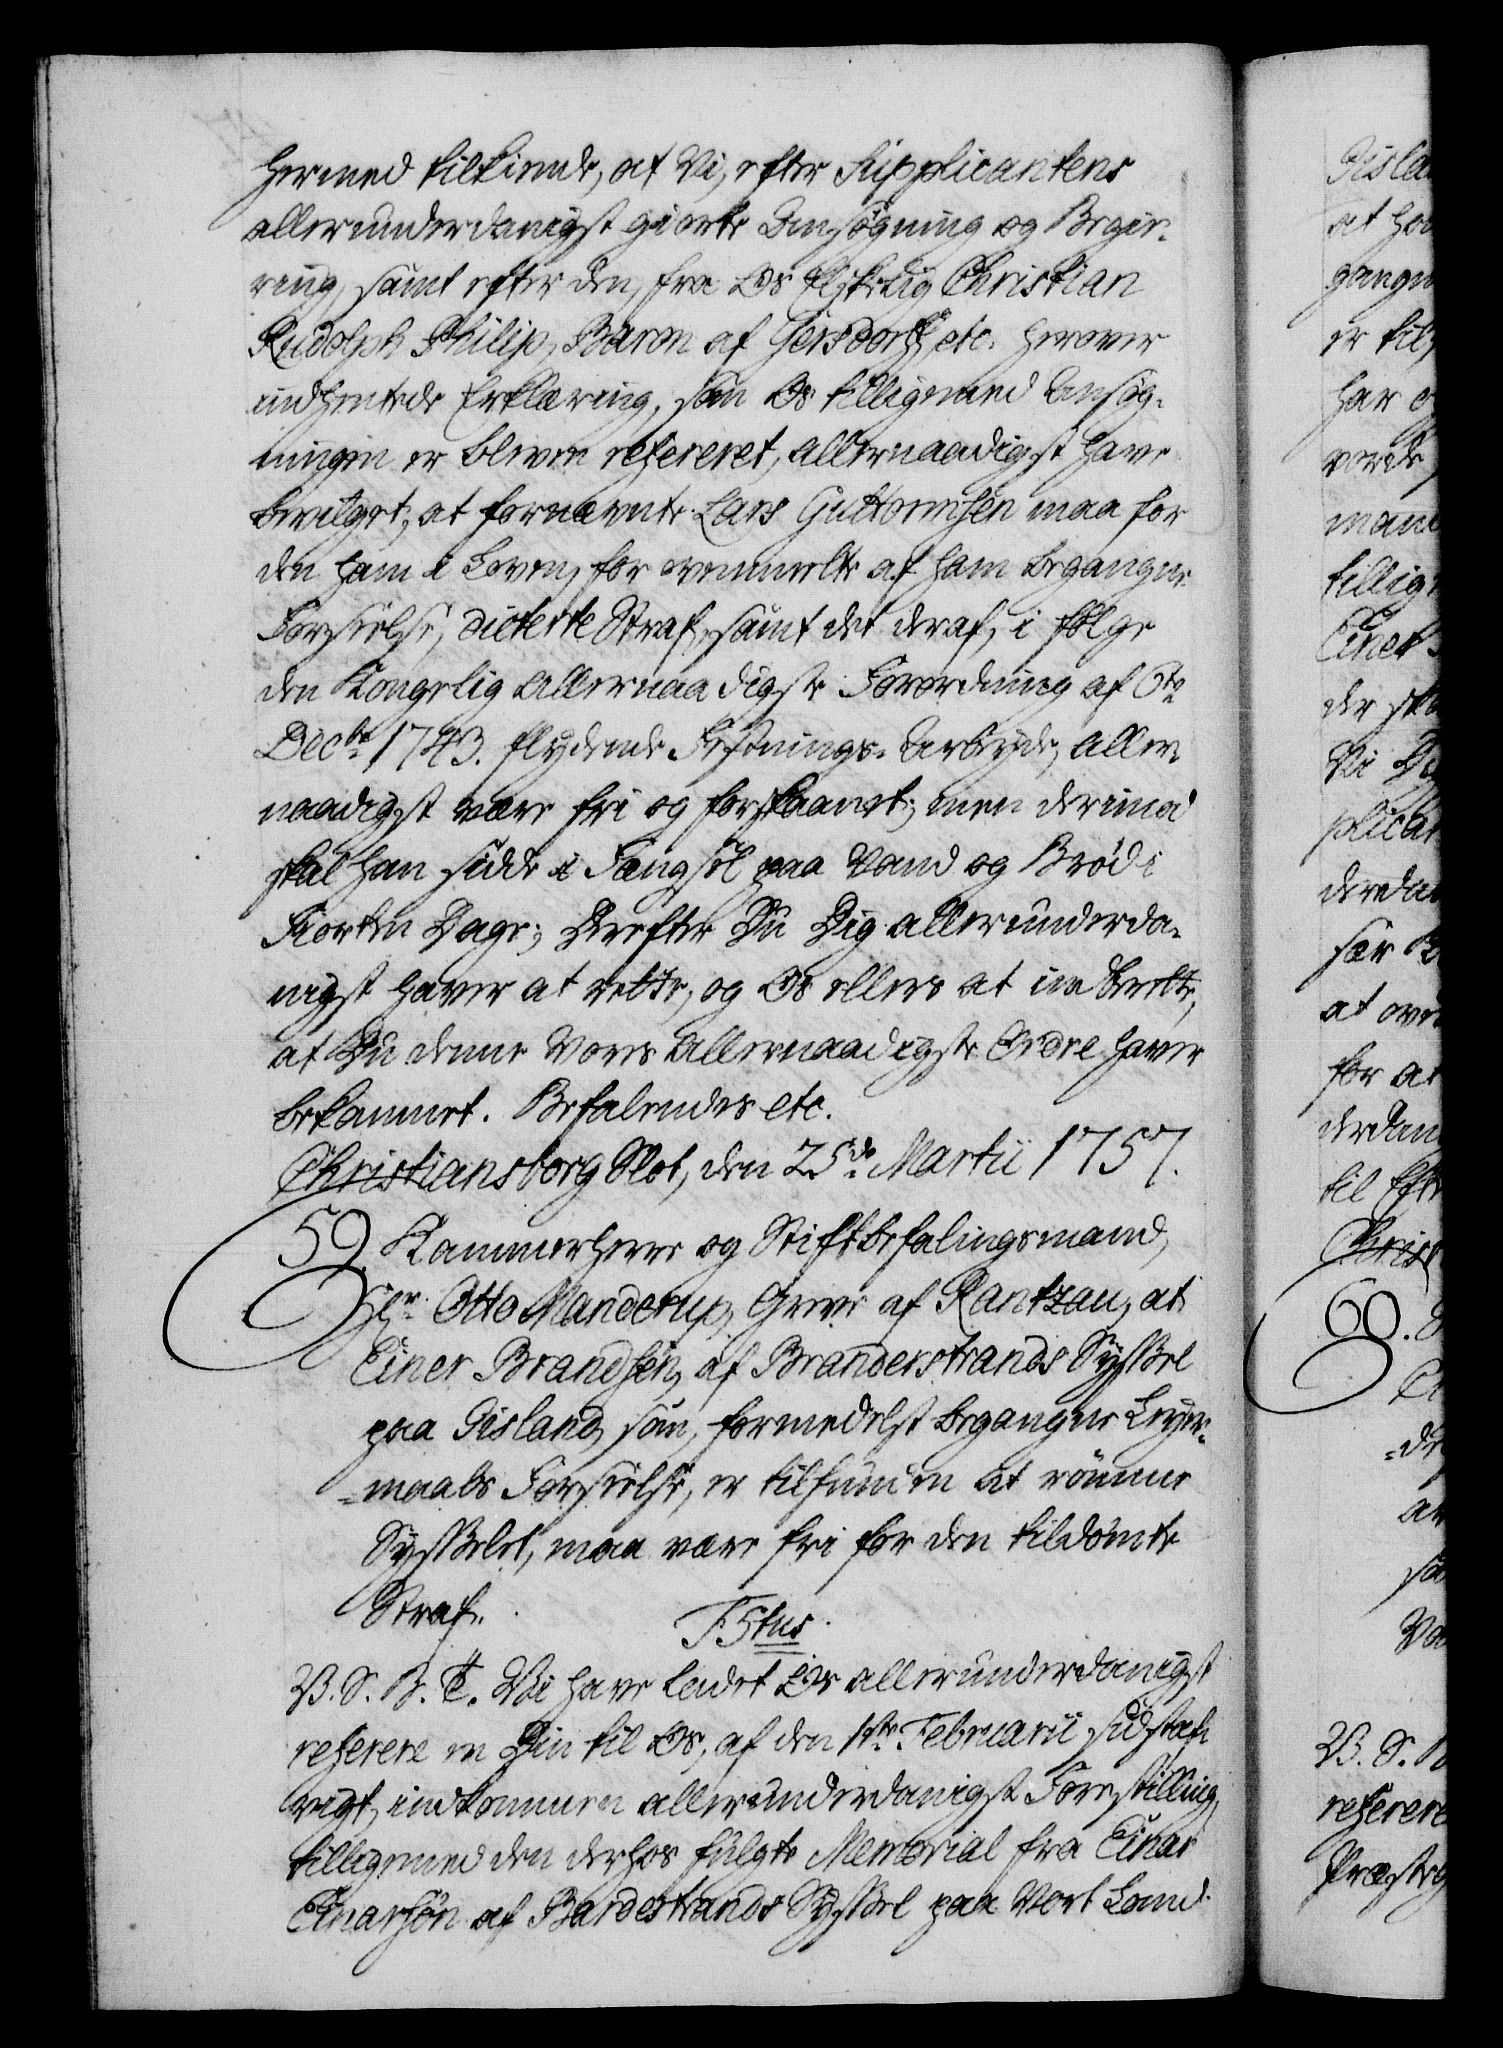 hermed tilkiende, at Vi, efter Supplicantens
allerunderdanigst giorte Ansøgning og Begie-
ring, samt efter den, fra Os Elskelig Christian
Rudolph Philip, Baron af Gersdorff etc. herover
indhentede Erklæring, som Os tilligemed Ansøg-
ningen er bleven refereret, allernaadigst have
bevilget, at fornævnte Lars Guttormsen maa for
den ham i Loven, for ovenmelte af ham begangne
Forseelse, dicterte Straf, samt det deraf, i følge
den Kongelig Allernaadigste Forordning af 6te
Decbr 1743. flydende Festnings-Arbeyde, aller-
naadigst være fri og forskaanet; men derimod
skal han sidde i Fængsel paa Vand og Brød i
Fiorten Dage; Derefter Du Dig allerunderda-
nigst haver at rette, og Os ellers at indberette,
at Du denne Vores Allernaadigste Ordre haver
bekommet. Befalendes etc.
Christiansborg Slot, den 25de Martii 1757.
59. Kammerherre og Stiftbefalingsmand,
Hr. Otto Manderup, Greve af Rantzau, at
Einer Brandsen, af Branderstrands Syssel
paa Iisland, som, formedelst begangne Leyer-
=maals Forseelse, er tilfunden at rømme
Sysselet, maa være fri for den tildømte
Straf.
F5tus.
V. S. B. T. Vi have ladet Os allerunderdanigst
referere en Din til Os, af den 1ste Februarii sidstaf-
vigt, indkommen allerunderdanigst Forestilling,
tilligemed den derhos fulgte Memorial fra Einar
Einarsøn af Bardestrands Syssel paa Vort Land